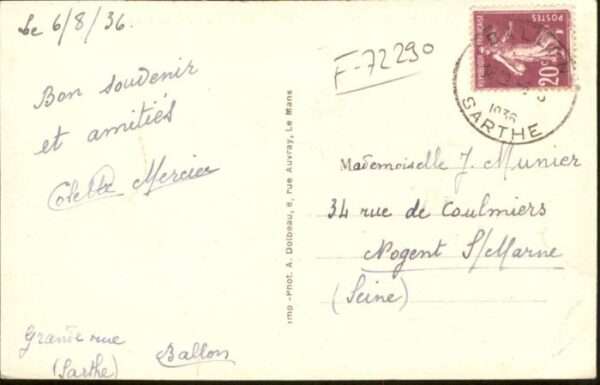 Le 6/8/36.
Bon souvenir
et amitiés
Colette Mercier
Grande rue
(Sarthe) Ballon
Imp-Phot. A. Dolbeau, 8, rue Auvray, Le Mans
F-72290
POSTES
20c
BALLON
1936
SARTHE
Mademoiselle J. Munier
34 rue de Coulmiers
Nogent S/Marne
(Seine)